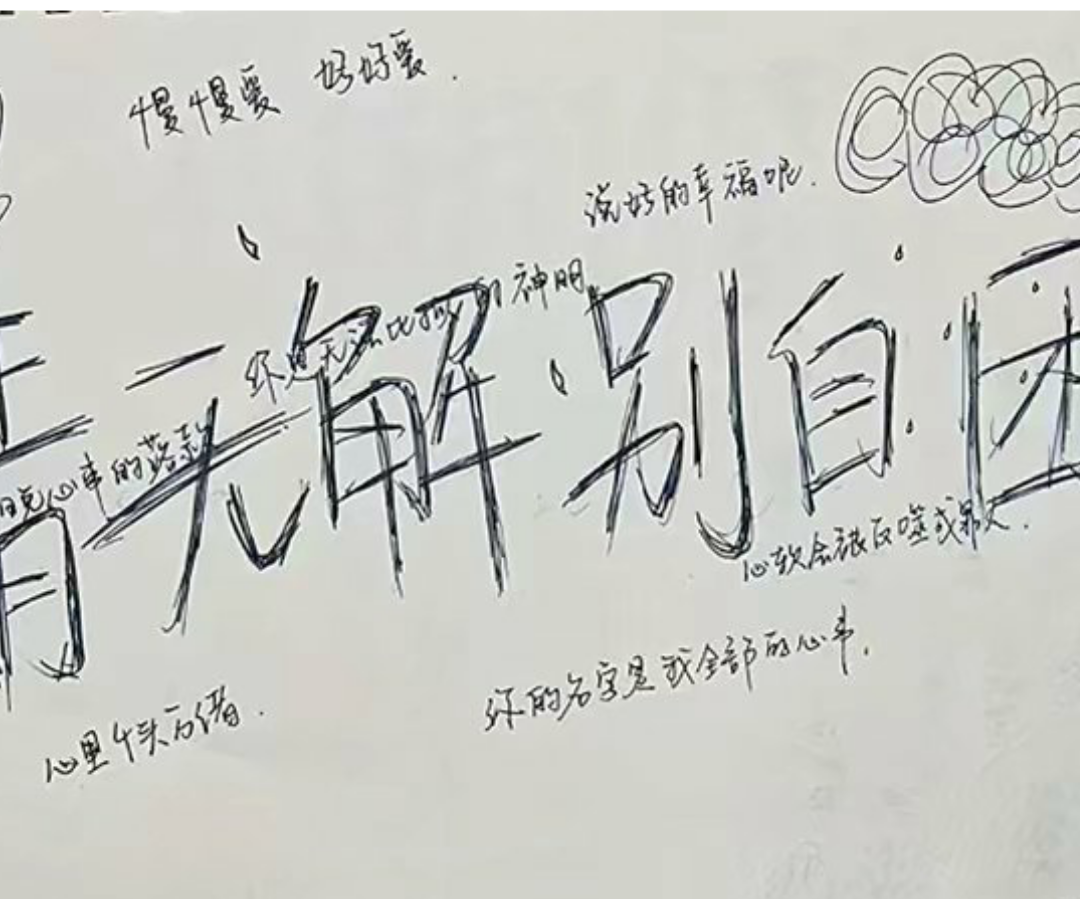 慢慢爱 好好爱.
说好的幸福呢.
你是无法比拟的神明
情无解别自困
晓心事的落款
心软会被反噬
你的名字是我全部的心事.
心里